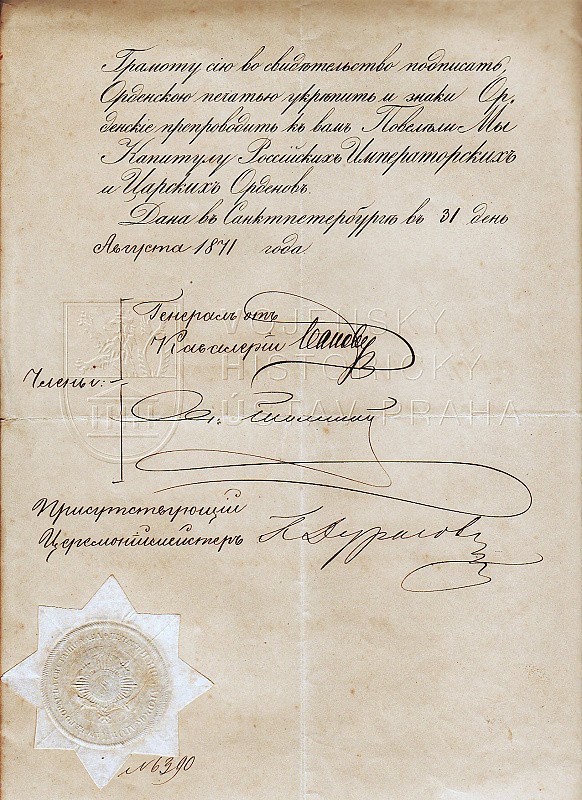 Грамоту сію во свидѣтельство подписать,
Орденскою печатью укрѣпить и знаки Ор-
денскіе препроводить къ вамъ Повелѣли Мы
Капитулу Россійскихъ Императорскихъ
и Царскихъ Орденовъ.
Дана въ Санктпетербургѣ въ 31 день
Августа 1871 года.
Генералъ отъ
Кавалеріи
Члены:
Присутствующій
Церемоніймейстеръ К Дурасовъ
№ 6390
VOJENSKÝ
HISTORICKÝ
ÚSTAV PRAHA